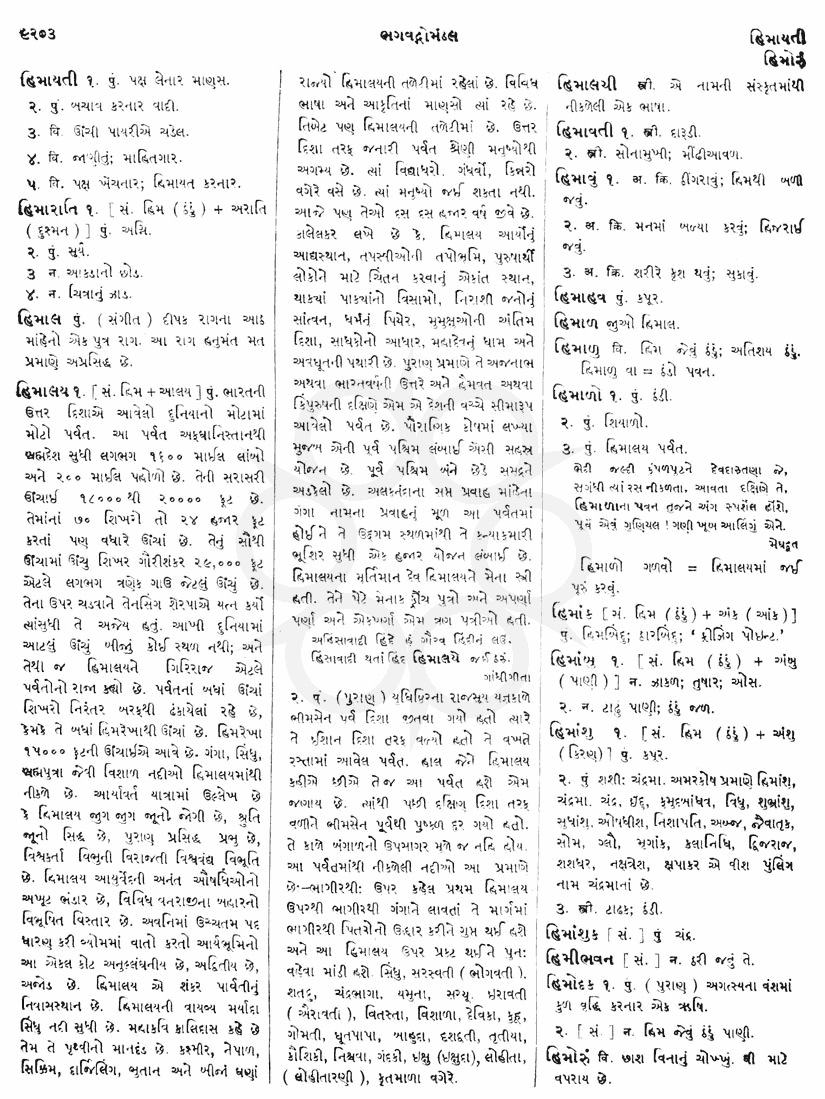 ૯૨૭૩
ભગવદ્ગોમંડલ
હિમાયતી
હિમોરું
હિમાયતી ૧. પું. પક્ષ લેનાર માણસ.
૨. પું. બચાવ કરનાર વાદી.
૩. વિ. ઊંચી પાયરીએ ચડેલ.
૪. વિ. જાણીતું; માહિતગાર.
૫. વિ. પક્ષ ખેંચનાર; હિમાયત કરનાર.
હિમારાતિ ૧. [ સં. હિમ ( ઠંડું ) + અરાતિ
( દુશ્મન ) ] પું. અગ્નિ.
૨. પું. સૂર્ય.
૩ ન. આકડાનો છોડ.
૪. ન. ચિત્રાનું ઝાડ.
હિમાલ પું. ( સંગીત ) દીપક રાગના આઠ
માંહેનો એક પુત્ર રાગ. આ રાગ હનુમંત મત
પ્રમાણે અપ્રસિદ્ધ છે.
હિમાલય ૧. [ સં. હિમ + આલય ] પું. ભારતની
ઉત્તર દિશાએ આવેલો દુનિયાનો મોટામાં
મોટો પર્વત. આ પર્વત અફઘાનિસ્તાનથી
બ્રહ્મદેશ સુધી લગભગ ૧૬૦૦ માઈલ લાંબો
અને ૨૦૦ માઈલ પહોળો છે. તેની સરાસરી
ઊંચાઈ ૧૮૦૦૦ થી ૨૦૦૦૦ ફૂટ છે.
તેમાંનાં ૭૦ શિખરો તો ૨૪ હજાર ફૂટ
કરતાં પણ વધારે ઊંચાં છે. તેનું સૌથી
ઊંચામાં ઊંચુ શિખર ગૌરીશંકર ૨૯,૦૦૦ ફૂટ
એટલે લગભગ ત્રણેક ગાઉ જેટલું ઊંચું છે.
તેના ઉપર ચડવાને તેનસિંગ શેરપાએ યત્ન કર્યો
ત્યાંસુધી તે અજેય હતું. આખી દુનિયામાં
આટલું ઊંચું બીજું કોઈ સ્થળ નથી; અને
તેથી જ હિમાલયને ગિરિરાજ એટલે
પર્વતોનો રાજા કહ્યો છે. પર્વતનાં બધાં ઊંચાં
શિખરો નિરંતર બરફથી ઢંકાયેલાં રહે છે,
કેમકે તે બધાં હિમરેખાથી ઊંચાં છે. હિમરેખા
૧૫૦૦૦ ફૂટની ઊંચાઈએ આવે છે. ગંગા, સિંધુ,
બ્રહ્મપુત્રા જેવી વિશાળ નદીઓ હિમાલયમાંથી
નીકળે છે. આર્યાવર્ત યાત્રામાં ઉલ્લેખ છે
કે હિમાલય જુગ જુગ જૂનો જોગી છે, શ્રુતિ
જૂનો સિદ્ધ છે, પુરાણ પ્રસિદ્ધ પ્રભુ છે,
વિશ્વકર્તા વિભુની વિરાજતી વિશ્વવંદ્ય વિભૂતિ
છે. હિમાલય આયુર્વેદની અનંત ઔષધિઓનો
અખૂટ ભંડાર છે, વિવિધ વનરાજીના બહારનો
વિભૂષિત વિસ્તાર છે. અવનિમાં ઉચ્ચતમ પદ
ધારણ કરી વ્યોમમાં વાતો કરતો આર્યભૂમિનો
આ એકલ કોટ અનુલ્લંઘનીય છે, અદ્વિતીય છે,
અજોડ છે. હિમાલય એ શંકર પાર્વતીનું
નિવાસસ્થાન છે. હિમાલયની વાયવ્ય મર્યાદા
સિંધુ નદી સુધી છે. મહાકવિ કાલિદાસ કહે છે
તેમ તે પૃથ્વીનો માનદંડ છે. કશ્મીર, નેપાળ,
સિક્કિમ, દાર્જિલિંગ, ભુતાન અને બીજાં ઘણાં
રાજ્યો હિમાલયની તળેટીમાં રહેલાં છે. વિવિધ
ભાષા અને આકૃતિનાં માણસો ત્યાં રહે છે.
તિબેટ પણ હિમાલયની તળેટીમાં છે. ઉત્તર
દિશા તરફ જનારી પર્વત શ્રેણી મનુષ્યોથી
અગમ્ય છે. ત્યાં વિદ્યાધરો. ગંધર્વો, કિન્નરો
વગેરે વસે છે. ત્યાં મનુષ્યો જઈ શકતા નથી.
આજે પણ તેઓ દસ દસ હજાર વર્ષ જીવે છે.
કાલેલકર લખે છે કે, હિમાલય આર્યોનું
આદ્યસ્થાન, તપસ્વીઓની તપોભૂમિ, પુરુષાર્થી
લોકોને માટે ચિંતન કરવાનું એકાંત સ્થાન,
થાક્યાં પાક્યાંનો વિસામો, નિરાશી જનોનું
સાંત્વન, ધર્મનું પિયેર, મુમુક્ષુઓની અંતિમ
દિશા, સાધકોનો આધાર, મહાદેવનું ધામ અને
અવધૂતની પથારી છે. પુરાણ પ્રમાણે તે અજનાભ
અથવા ભારતવર્ષની ઉત્તરે અને હૈમવત અથવા
કિંપુરુષની દક્ષિણે એમ એ દેશની વચ્ચે સીમારૂપ
આવેલો પર્વત છે. પૌરાણિક કોષમાં લખ્યા
મુજબ એની પૂર્વ પશ્ચિમ લંબાઈ એંસી સહસ્ર
યોજન છે. પૂર્વ પશ્ચિમ બંને છેડે સમુદ્રને
અડકેલો છે. અલકનંદાના સપ્ત પ્રવાહ માંહેના
ગંગા નામના પ્રવાહનું મૂળ આ પર્વતમાં
હોઈને તે ઉદ્ગમ સ્થળમાંથી તે કન્યાકુમારી
ભૂશિર સુધી એક હજાર યોજન લંબાઈ છે.
હિમાલયના મૂર્તિમાન દેવ હિમાલયને મેના સ્ત્રી
હતી. તેને પેટે મેનાક ક્રૌંચ પુત્રો અને અપર્ણા
પર્ણા અને એકપર્ણા એમ ત્રણ પુત્રીઓ હતી.
અહિંસાવાદી હિંદે હં ગૌરવ હિંદીનું લઉં.
હિંસાવાદી થતાં હિંદ હિમાલયે જઈ ઠરું.
ગાંધીગીતા
૨. પું. ( પુરાણ ) યુધિષ્ઠિરના રાજસૂય યજ્ઞકાળે
ભીમસેન પૂર્વ દિશા જીતવા ગયો હતો ત્યારે
તે ઈશાન દિશા તરફ વળ્યો હતો તે વખતે
રસ્તામાં આવેલ પર્વત. હાલ જેને હિમાલય
કહીએ છીએ તે જ આ પર્વત હશે એમ
જણાય છે. ત્યાંથી પછી દક્ષિણ દિશા તરફ
વળીને ભીમસેન પૂર્વથી પુષ્કળ દૂર ગયો હતો.
તે કાળે બંગાળનો ઉપસાગર મળે જ નહિ હોય.
આ પર્વતમાંથી નીકળેલી નદીઓ આ પ્રમાણે
છેઃ–ભાગીરથી: ઉપર કહેલ પ્રથમ હિમાલય
ઉપરથી ભાગીરથી ગંગાને લાવતાં તે માર્ગમાં
ભાગીરથી પિતરોનો ઉદ્ધાર કરીને ગુપ્ત થઈ હશે
અને આ હિમાલય ઉપર પ્રકટ થઈને પુનઃ
વહેવા માંડી હશે. સિંધુ, સરસ્વતી ( ભોગવતી ).
શતદ્રુ, ચંદ્રભાગા, યમુના, સરયૂ, ઇરાવતી
( ઐરાવતી ), વિતસ્તા, વિશાળા, દેવિકા, કુહૂ,
ગોમતી, ધૂતપાપા, બાહુદા, દશદ્વતી, તૃતીયા,
કૌશિકી, નિશ્ચવા, ગંદકી, ઇક્ષુ (ઇક્ષુદા), લોહીતા,
( લોહીતારણી ), કૃતમાળા વગેરે.
હિમાલચી સ્ત્રી. એ નામની સંસ્કૃતમાંથી
નીકળેલી એક ભાષા.
હિમાવતી ૧. સ્ત્રી. દારૂડી.
૨. સ્ત્રી. સોનામુખી; મીંઢીઆવળ.
હિમાવું ૧. અ. ક્રિ. ઠીંગરાવું; હિમથી બળી
જવું.
૨. અ. ક્રિ. મનમાં બળ્યા કરવું; હિજરાઈ
જવું.
૩. અ. ક્રિ. શરીરે કૃશ થવું; સુકાવું.
હિમાહવ પું. કપૂર.
હિમાળ જુઓ હિમાલ.
હિમાળુ વિ. હિમ જેવું ઠંડું; અતિશય ઠંડું.
હિમાળુ વા = ઠંડો પવન.
હિમાળો ૧. પું. ઠંડી.
૨. પું. શિયાળો.
૩. પું. હિમાલય પર્વત.
ભેદી જલ્દી કુંપળપુટને દેવદારુતણા જે,
સગંધી ત્યાં રસ નીકળતા, આવતા દક્ષિણે તે,
હિમાળાના પવન તૂજને અંગ સ્પર્શેલ હોંશે,
પૂરાં એવું ગુણિયલ ! ગણી ખૂબ આલિંગું એને.
મેઘદૂત
હિમાળો ગળવો = હિમાલયમાં જઈ
પૂરું કરવું.
હિમાંક [ સં. હિમ ( ઠંડું ) + અંક ( આંક ) ]
પું. હિમબિંદુ; ઠારબિંદુ; ‘ ફ્રીઝિંગ પૉઇન્ટ.’
હિમાંબુ ૧. [ સં. હિમ ( ઠંડું ) + અંબુ
( પાણી ) ] ન. ઝાકળ; તુષાર; ઓસ.
૨. ન. ટાઢું પાણી; ઠંડું જળ.
હિમાંશુ ૧. [ સં. હિમ ( ઠંડું ) + અંશુ
( કિરણ ) ] પું. કપૂર.
૨. પું શશી; ચંદ્રમા. અમરકોષ પ્રમાણે હિમાંશુ,
ચંદ્રમા. ચંદ્ર, ઇંદુ, કુમુદબાંધવ, વિધુ, શુભ્રાંશુ,
સુધાંશુ, ઓષધીશ, નિશાપતિ, અબ્જ, જૈવાતૃક,
સોમ, ગ્લૌ, મૃગાંક, કલાનિધિ, દ્વિજરાજ,
શશધર, નક્ષત્રેશ, ક્ષપાકર એ વીશ પુંલિંગ
નામ ચંદ્રમાનાં છે.
૩. સ્ત્રી. ટાઢક; ઠંડી.
હિમાંશુક [ સં. ] પું ચંદ્ર.
હિમીભવન [ સં. ] ન. ઠરી જવું તે.
હિમોદક ૧. પું. ( પુરાણ ) અગસ્ત્યના વંશમાં
કુળ વૃદ્ધિ કરનાર એક ઋષિ.
૨. [ સં. ] ન. હિમ જેવું ઠંડું પાણી.
હિમોરું વિ. છાશ વિનાનું ચોખ્ખું. ઘી માટે
વપરાય છે.